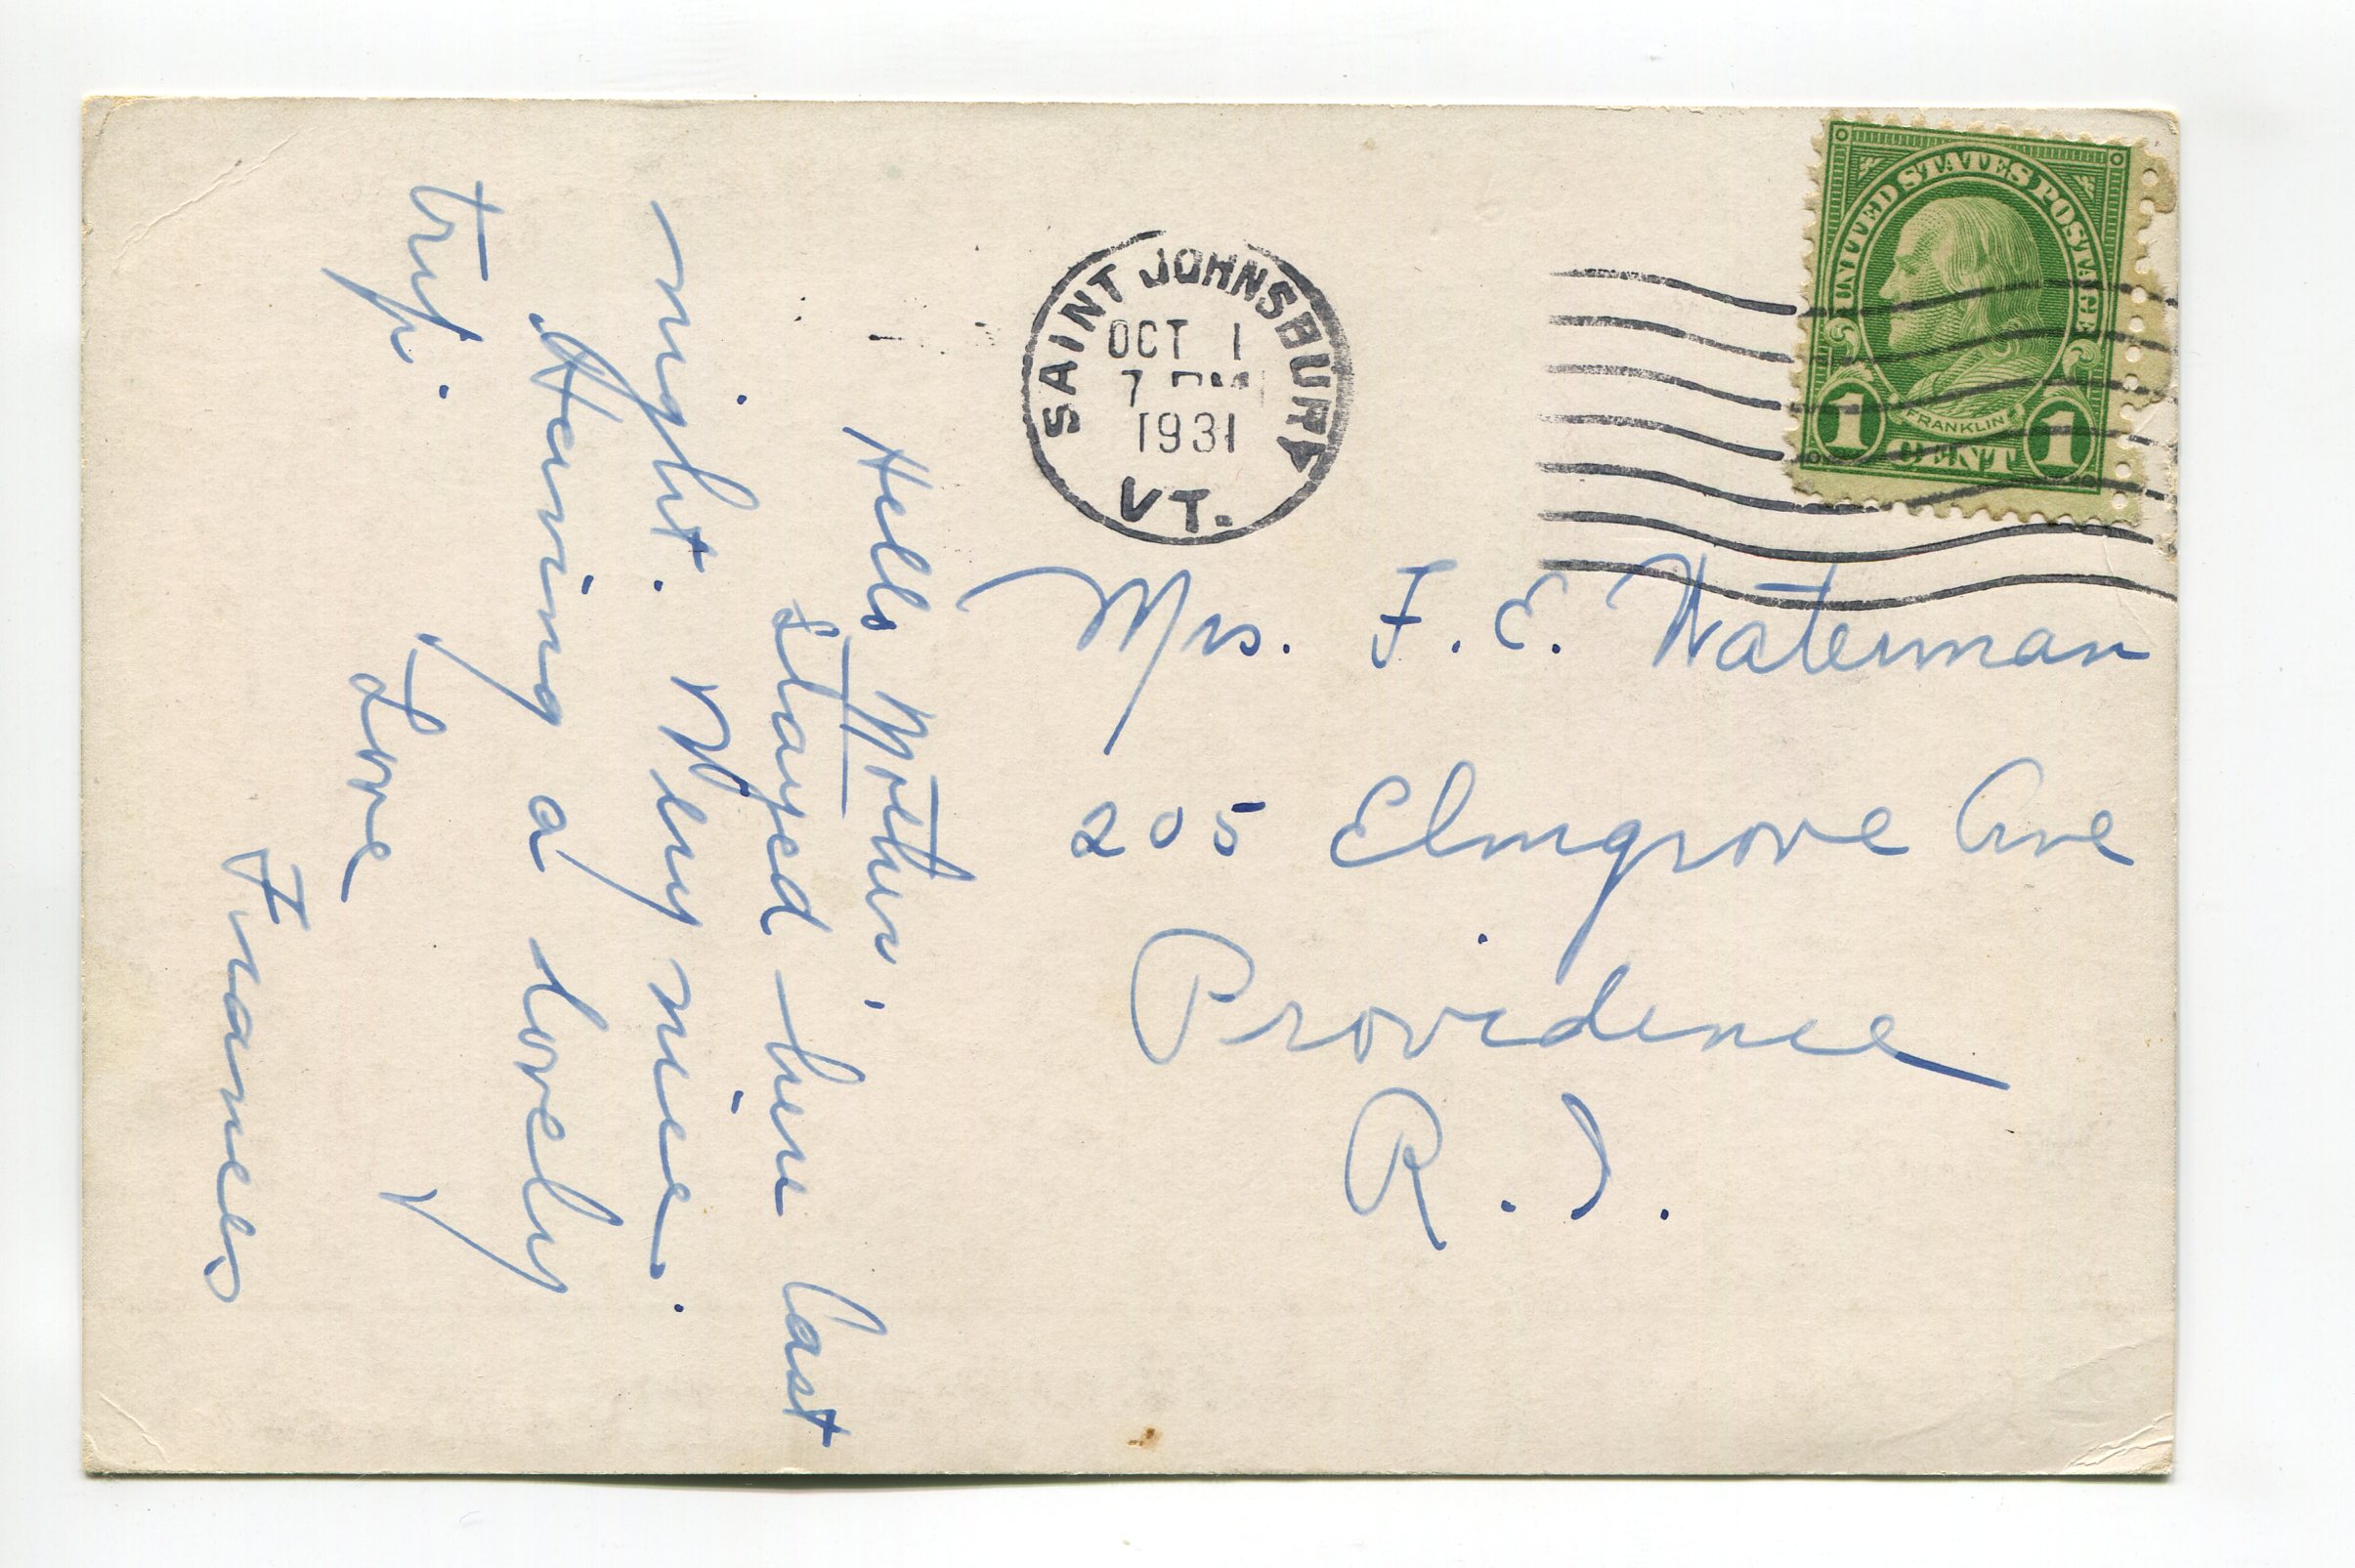 UNITED STATES POSTAGE
FRANKLIN
1 CENT 1
SAINT JOHNSBURY
OCT 1
7 PM
1931
VT.
Mrs. F. E. Waterman
205 Elmgrove Ave
Providence
R. I.
Hello Mother.
Stayed here last
night. Very nice.
Having a lovely
trip.
Love
Frances